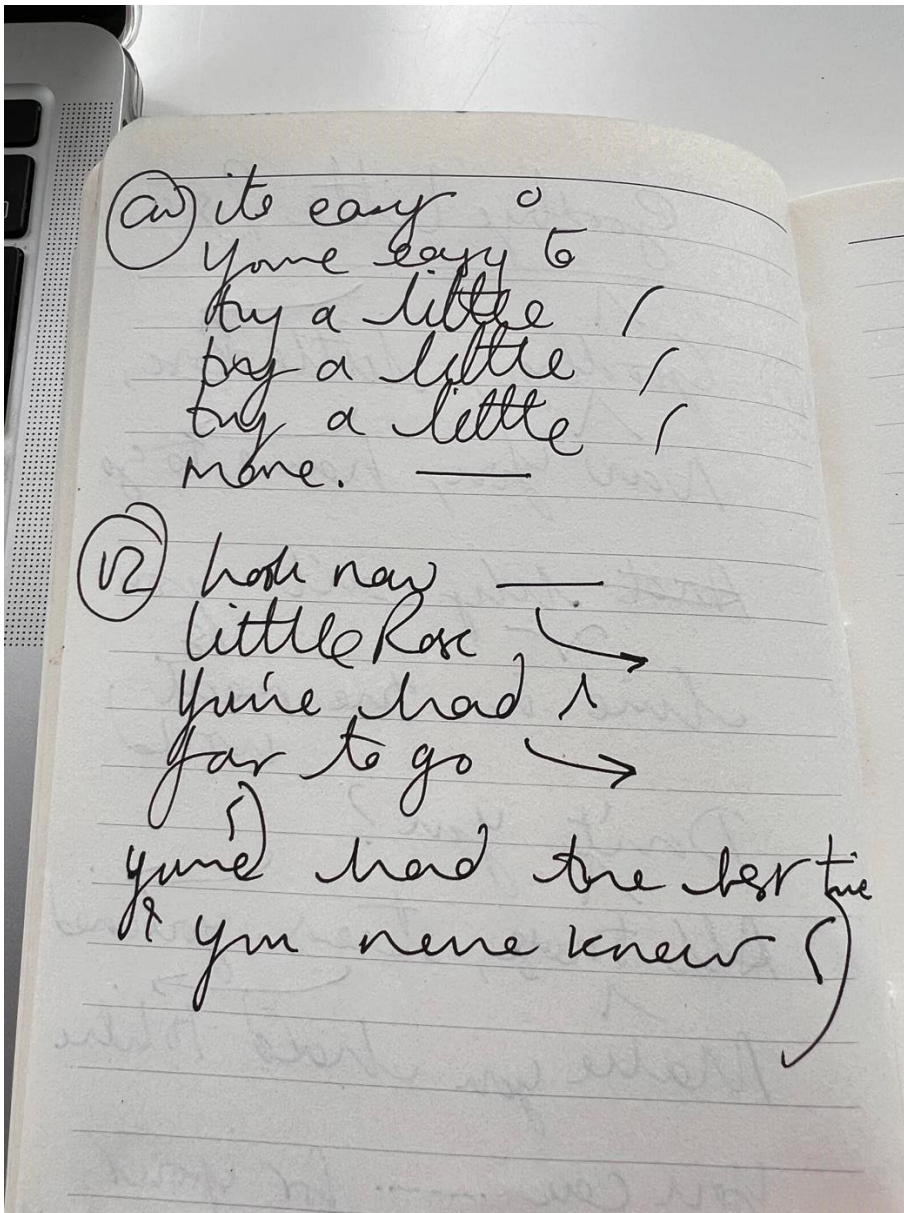 its easy
you're easy to
try a little
try a little
try a little
more.
V2 look now
little Rose
you've had
far to go
you've had the best time
& you never knew